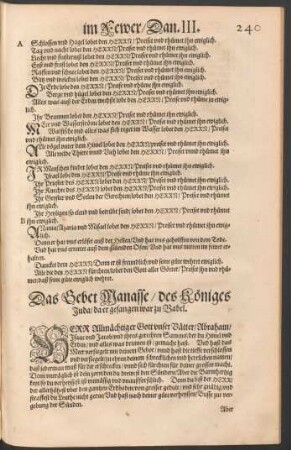 im Fewer/ Dan. III.
240
A
Schlossen vnd Hagel lobet den HERRN/ Preiset vnd rhümet ihn ewiglich.
Tag vnd nacht lobet den HERRN/ Preiset vnd rhümet ihn ewiglich.
Liecht vnd finsternis lobet den HERRN/ Preiset vnd rhümet ihn ewiglich.
Eis vnd frost lobet den HERRN/ Preiset vnd rhümet ihn ewiglich.
Reiffen vnd schnee lobet den HERRN/ Preiset vnd rhümet ihn ewiglich.
Blitz vnd wolcken lobet den HERRN/ Preiset vnd rhümet ihn ewiglich.
DIe Erde lobe den HERRN/ Preise vnd rhüme ihn ewiglich.
Berge vnd hügel lobet den HERRN/ Preiset vnd rhümet ihn ewiglich.
Alles was auff der Erden wechst lobe den HERRN/ Preise vnd rhüme in ewig-
lich.
Ihr Brunnen lobet den HERRN/ Preiset vnd rhümet ihn ewiglich.
MEer vnd Wasserström lobet den HERRN/ Preiset vnd rhümet ihn ewiglich.
Walfische vnd alles was sich reget im Wasser lobet den HERRN/ Preiset
vnd rhümet ihn ewiglich.
ALle vögel vnter dem Himel lobet den HERRN/ preiset vnd rhümet ihn ewiglich.
Alle wilde Thiere vnd Vieh lobet den HERRN/ Preiset vnd rhümet ihn
ewiglich.
IR Menschen kinder lobet den HERRN/ Preiset vnd rhümet ihn ewiglich.
Israel lobe den HERRN/ Preise vnd rhüme ihn ewiglich.
Ihr Priester des HERRN lobet den HERRN/ Preiset vnd rhümet ihn ewiglich.
Ihr Knechte des HERRN lobet den HERRN/ Preiset vnd rhümet ihn ewiglich.
Ihr Geyster vnd Seelen der Gerechten/ lobet den HERRN/ Preiset vnd rhümet
ihn ewiglich.
Ihr Heyligen so elend vnd betrübt sind/ lobet den HERRN/ Preiset vnd rhümet
B
ihn ewiglich.
ANania/ Azaria vnd Misael lobet den HERRN/ Preiset vnd rhümet ihn
ewiglich.
Denn er hat vns erlöset auß der Hellen/ Vnd hat vns geholffen von dem Tode.
Vnd hat vns errettet auß dem glüenden Ofen/ Vnd hat vns mitten im fewer er-
halten.
Dancket dem HERRN/ Denn er ist freundtlich/ vnd seine güte wehret ewiglich.
Alle die den HERRN fürchten/ lobet den Gott aller Götter/ Preiset ihn vnd rhü-
met/ daß seine güte ewiglich wehret.
Das Gebet Manasse/ des Königes
Juda/ da er gefangen war zu Babel.
HERR Allmächtiger Gott vnser Vätter/ Abraham/
Isaac vnd Jacob/ vnd ihres gerechten Samens/ der du Himel vnd
Erden/ vnd alles was drinnen ist/ gemacht hast/ Vnd hast das
Meer versiegelt mit deinem Gebot/ vnnd hast die tieffe verschlossen
vnd versiegelt zu ehren deinem schrecklichen vnd herrlichen namen/
daß jederman muß für dir erschrecken/ vnd sich fürchten für deiner grossen macht.
Aber